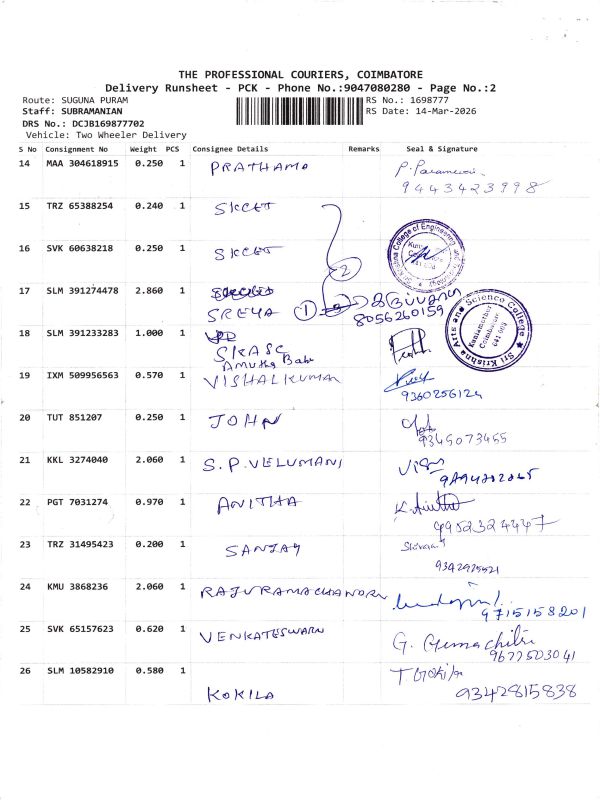 THE PROFESSIONAL COURIERS, COIMBATORE
Delivery Runsheet - PCK - Phone No.:9047080280 - Page No.:2
Route: SUGUNA PURAM RS No.: 1698777
Staff: SUBRAMANIAN RS Date: 14-Mar-2026
DRS No.: DCJB169877702
Vehicle: Two Wheeler Delivery
S No Consignment No Weight PCS Consignee Details Remarks Seal & Signature
14 MAA 304618915 0.250 1 PRATHAMA P. Parameswari
9443423998
15 TRZ 65388254 0.240 1 SKCET
16 SVK 60638218 0.250 1 SKCET 2
Sri Krishna College of Engineering and Technology
17 SLM 391274478 2.860 1
SREYA 1
8056260159
18 SLM 391233283 1.000 1
SKASC
Amutha Babu
Sri Krishna Arts and Science College
Kuniamuthur
Coimbatore
641 008
19 IXM 509956563 0.570 1 VISHALKUMAR
9360256124
20 TUT 851207 0.250 1 JOHN
9345073455
21 KKL 3274040 2.060 1 S.P.VELUMANI
22 PGT 7031274 0.970 1 ANITHA K. Anitha
9952324447
23 TRZ 31495423 0.200 1 SANJAY
24 KMU 3868236 2.060 1 RAJURAMACHANDRN
9715158201
25 SVK 65157623 0.620 1 VENKATESWARN G.
9677503041
26 SLM 10582910 0.580 1 KOKILA T Gokila
9342815838